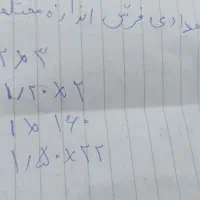 عدادی فرش اندازه مختلف
۲ × ۳
۱٫۲۰ × ۲
۱ × ۱۶۰
۱٫۵۰ × ۲۲